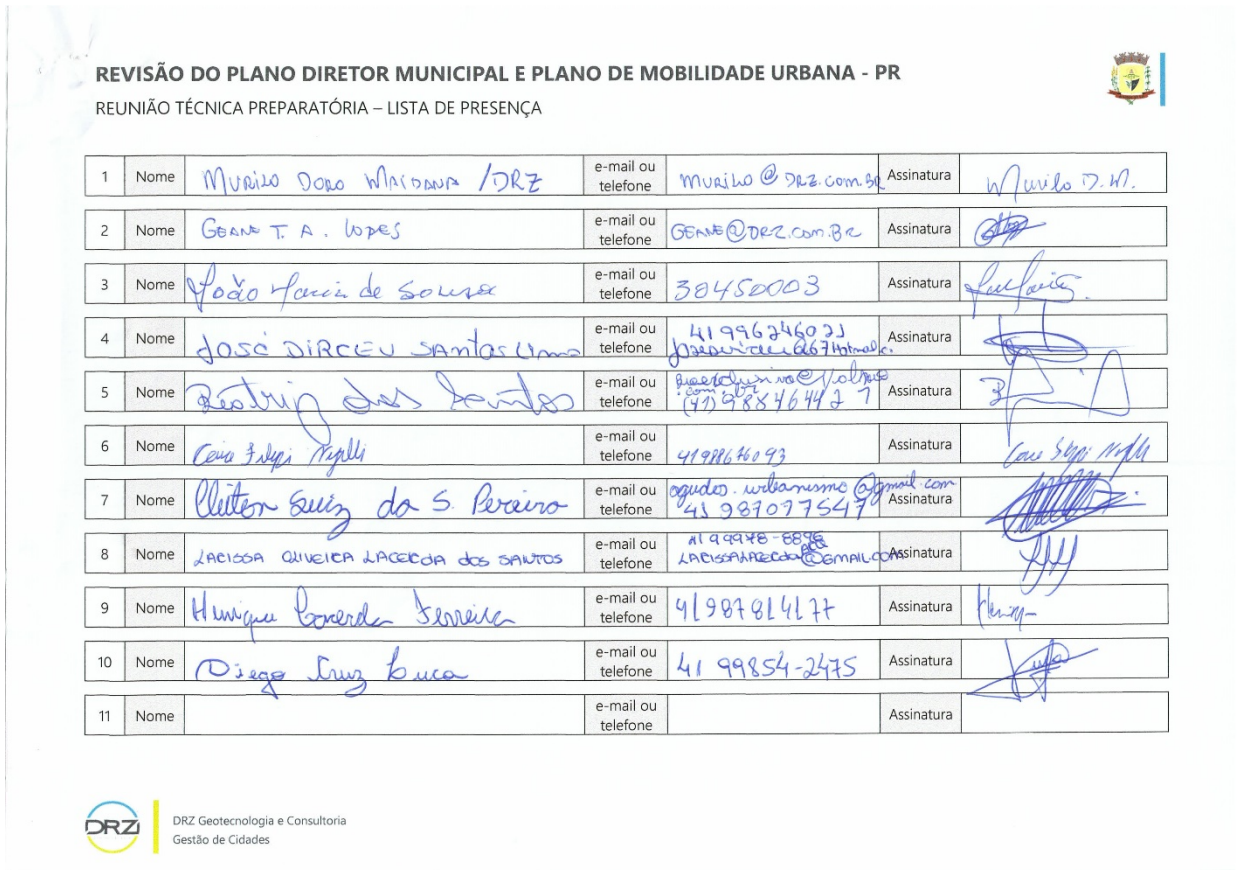 REVISÃO DO PLANO DIRETOR MUNICIPAL E PLANO DE MOBILIDADE URBANA - PR
REUNIÃO TÉCNICA PREPARATÓRIA – LISTA DE PRESENÇA
1 Nome MURILO DORO MAIDANA /DRZ e-mail ou telefone MURILO@DRZ.COM.BR Assinatura Murilo D. M.
2 Nome GEANE T. A. LOPES e-mail ou telefone GEANE@DRZ.COM.BR Assinatura
3 Nome João Maria de Souza e-mail ou telefone 30450003 Assinatura
4 Nome JOSÉ DIRCEU SANTOS LIMA e-mail ou telefone 41996246021 Assinatura
5 Nome Beatriz dos Santos e-mail ou telefone (41) 988464427 Assinatura
6 Nome Filipi e-mail ou telefone 41988676093 Assinatura
7 Nome Cleiton Luiz da S. Pereira e-mail ou telefone agudos.urbanismo@gmail.com 41 987077547 Assinatura
8 Nome LARISSA OLIVEIRA LACERDA DOS SANTOS e-mail ou telefone Assinatura
9 Nome Henrique Ferreira e-mail ou telefone 41987814177 Assinatura
10 Nome Diego Cruz e-mail ou telefone 41 99854-2475 Assinatura
11 Nome e-mail ou telefone Assinatura
DRZ
DRZ Geotecnologia e Consultoria
Gestão de Cidades